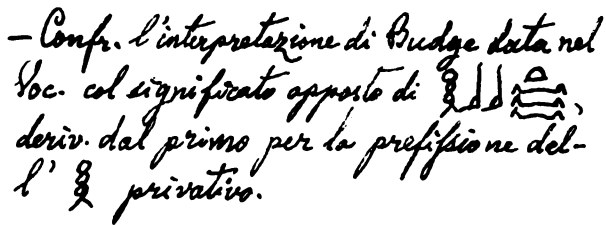 – Confr. l'interpretazione di Budge data nel
Voc. col significato opposto di 𓎛𓃀𓃀𓏏𓈗,
deriv. dal primo per la prefissione del-
l' 𓎛 privativo.